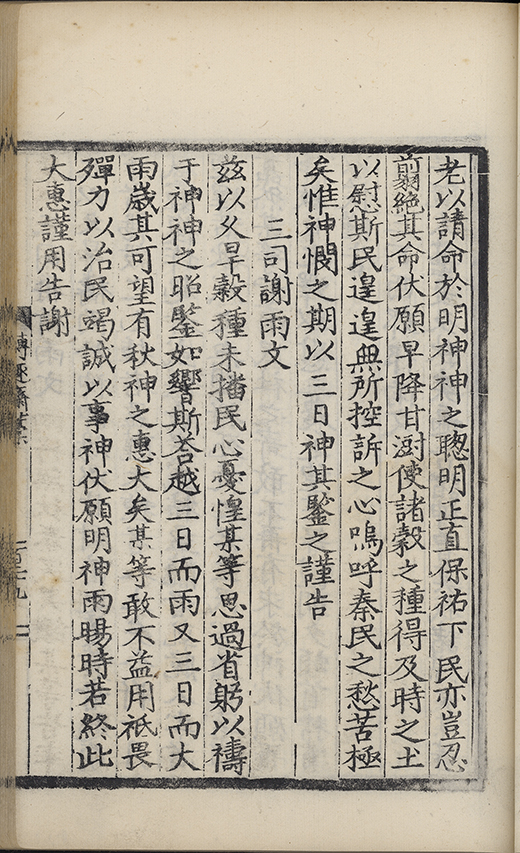 老以請命於明神神之聦明正直保祐下民亦豈忍
剪絕其命伏願早降甘澍使諸穀之種得及時之土
以慰斯民遑遑無所控訴之心嗚呼秦民之愁苦極
矣惟神憫之期以三日神其鑒之謹告
三司謝雨文
兹以久旱穀種未播民心憂惶某等思過省躬以禱
于神神之昭鑒如響斯荅越三日而雨又三日而大
雨歲其可望有秋神之惠大矣某等敢不益用祇畏
殫力以治民竭誠以事神伏願明神雨暘時若終此
大惠謹用告謝